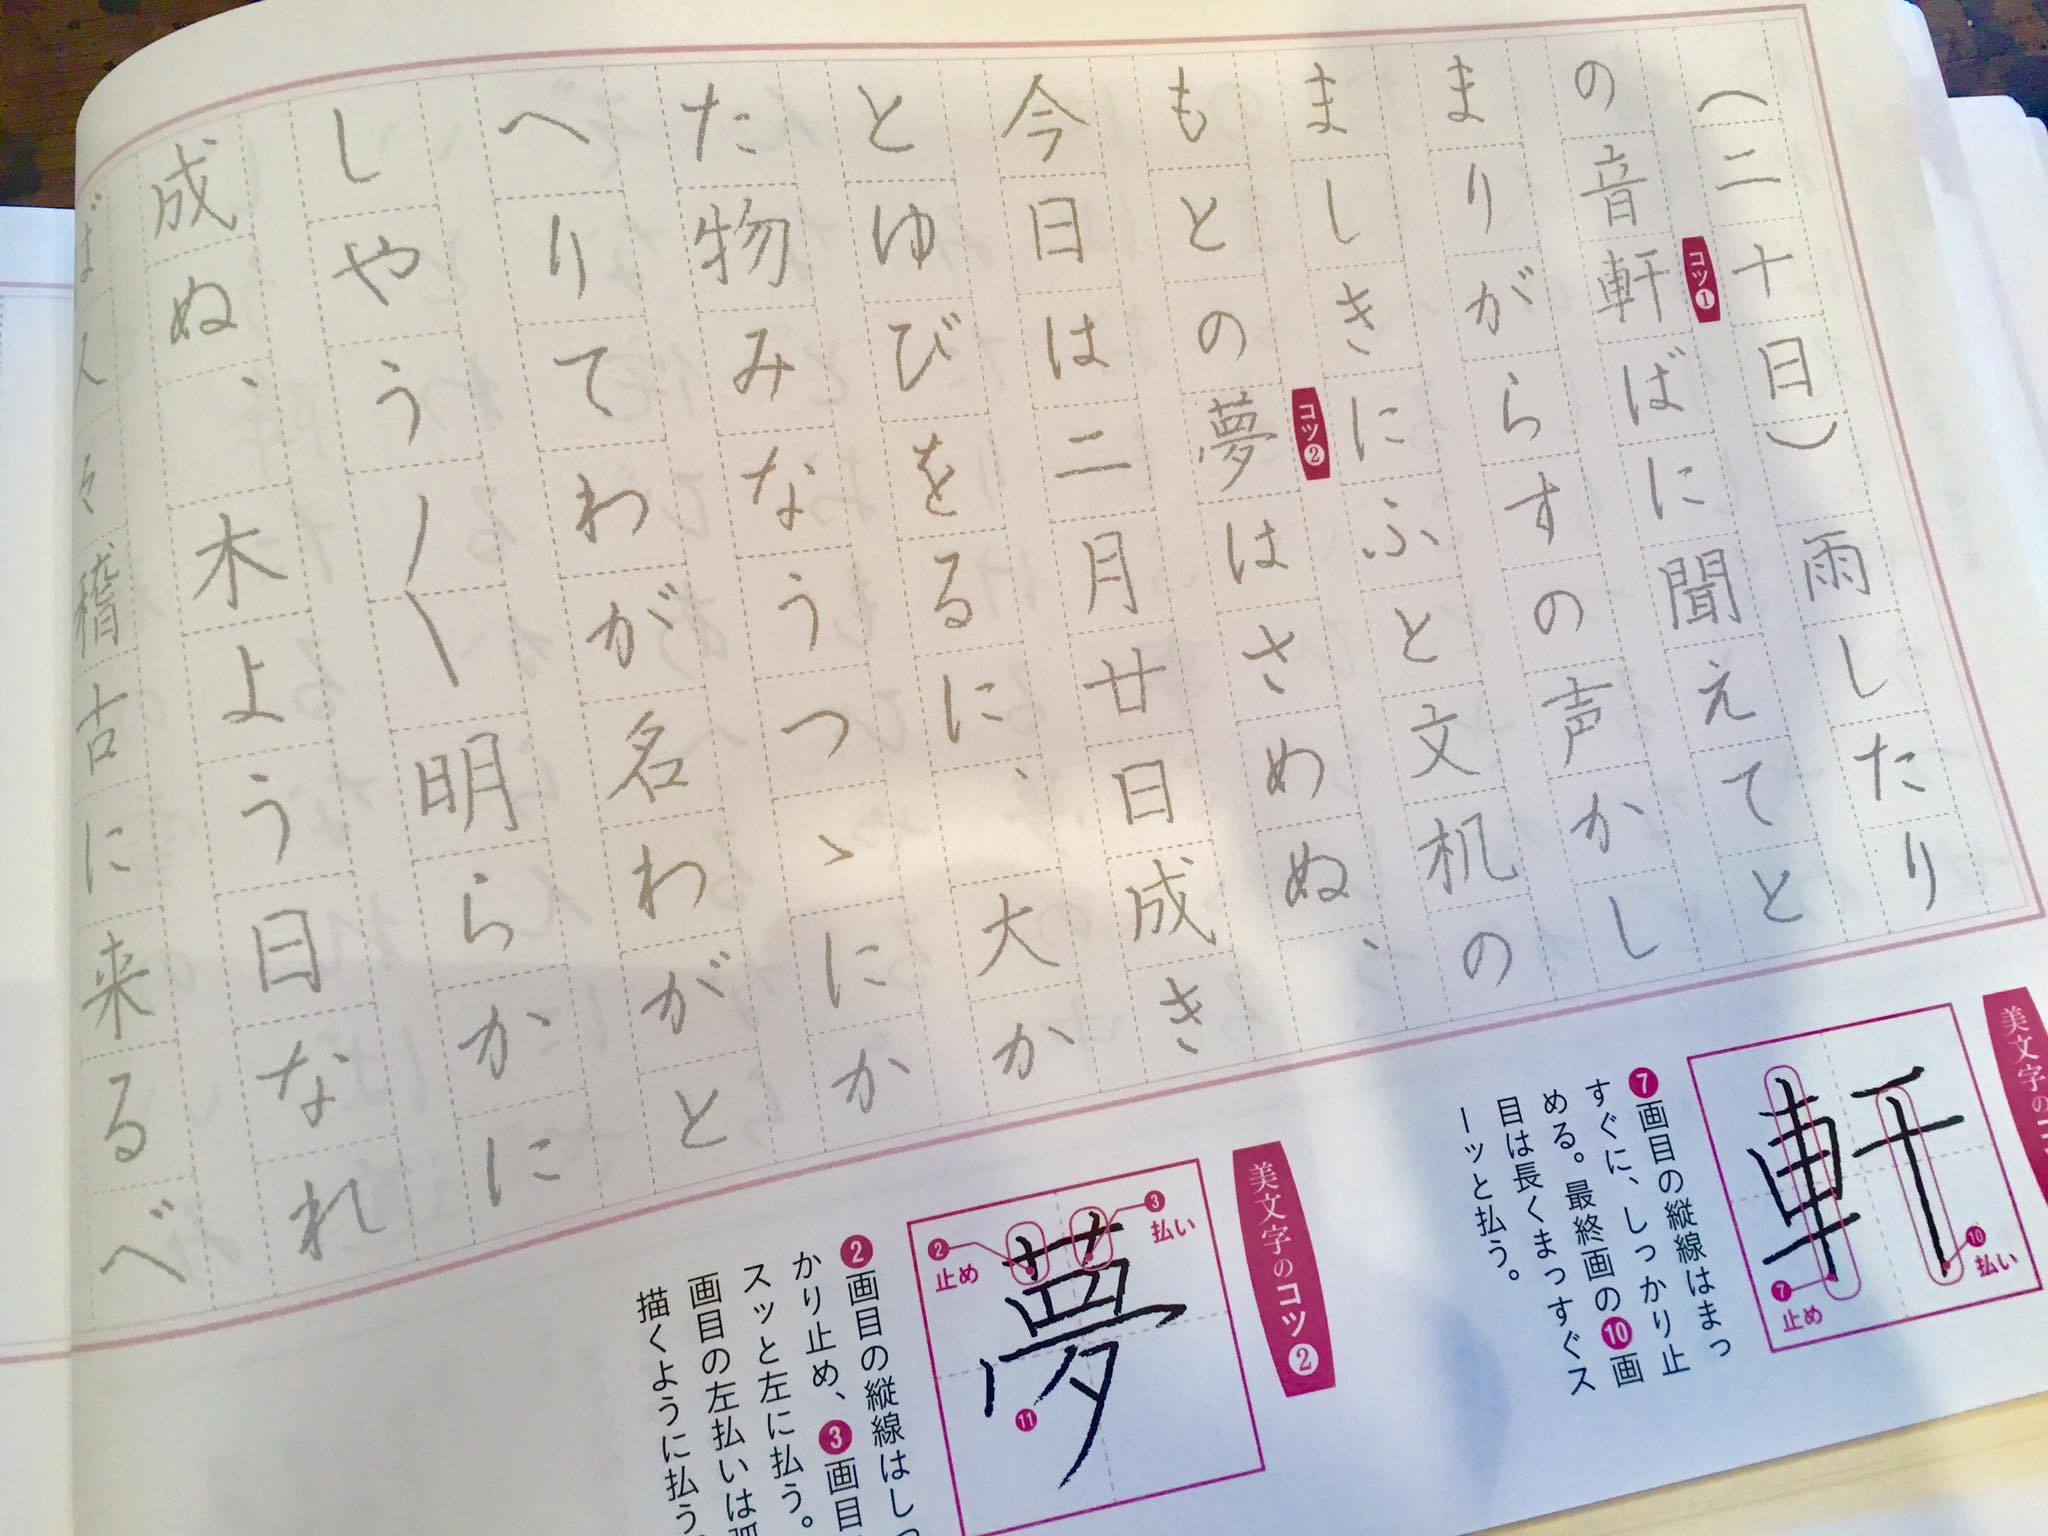 （二十日）雨したり
の音軒ばに聞えてと
まりがらすの声かし
ましきにふと文机の
もとの夢はさめぬ、
今日は二月廿日成き
とゆびををるに、大か
た物みなうつゝにか
へりてわが名わがと
しやう〳〵明らかに
成ぬ、木よう日なれ
ば人々稽古に来るべ
コツ❶
コツ❷
美文字の
❼画目の縦線はまっ
すぐに、しっかり止
める。最終画の❿画
目は長くまっすぐス
ーッと払う。
軒
❼止め
❿払い
美文字のコツ❷
❷画目の縦線はしっ
かり止め、❸画目
スッと左に払う。
画目の左払いは弧
描くように払う。
夢
❷止め
❸払い
⓫